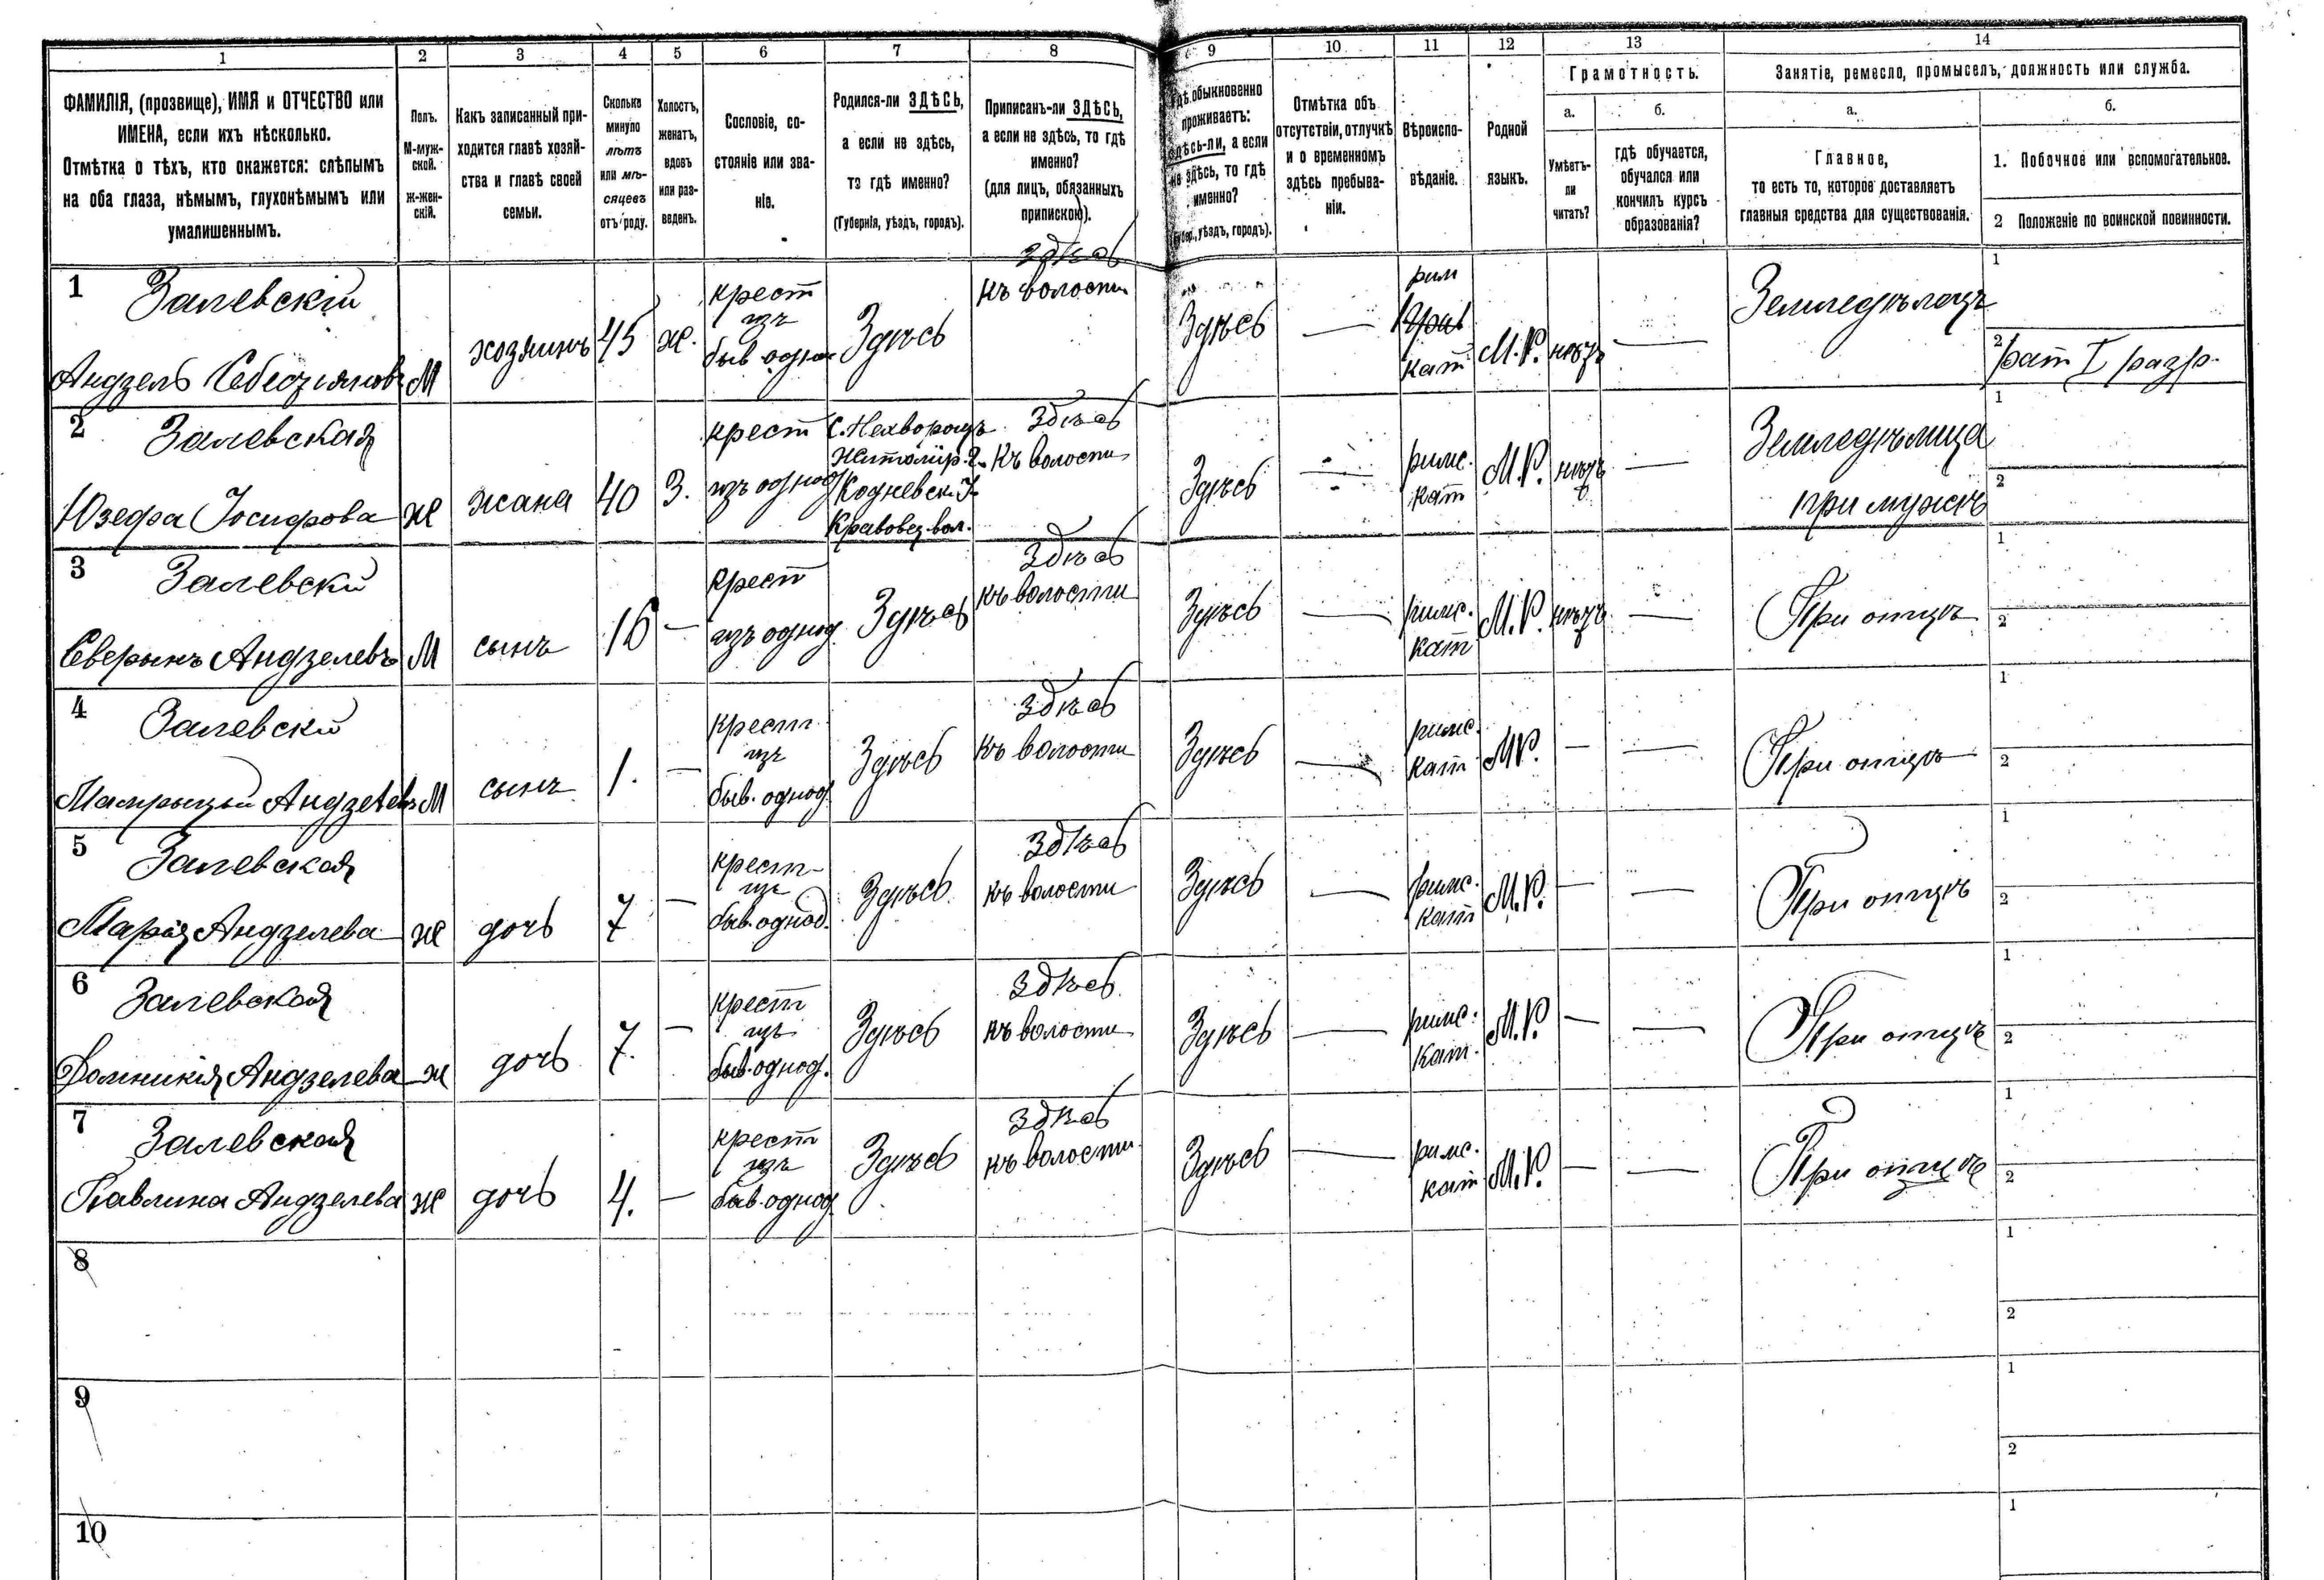 1 2 3 4 5 6 7 8 9 10 11 12 13 14
ФАМИЛІЯ, (прозвище), ИМЯ и ОТЧЕСТВО или
ИМЕНА, если ихъ нѣсколько.
Отмѣтка о тѣхъ, кто окажется: слѣпымъ
на оба глаза, нѣмымъ, глухонѣмымъ или
умалишеннымъ.
Полъ.
М-муж-
ской.
ж-жен-
скій.
Какъ записанный при-
ходится главѣ хозяй-
ства и главѣ своей
семьи.
Сколько
минуло
лѣтъ
или мѣ-
сяцевъ
отъ роду.
Холостъ,
женатъ,
вдовъ
или раз-
веденъ.
Сословіе, со-
стояніе или зва-
ніе.
Родился-ли ЗДѢСЬ,
а если не здѣсь,
то гдѣ именно?
(Губернія, уѣздъ, городъ).
Приписанъ-ли ЗДѢСЬ,
а если не здѣсь, то гдѣ
именно?
(для лицъ, обязанныхъ
припискою).
Гдѣ обыкновенно
проживаетъ:
здѣсь-ли, а если
не здѣсь, то гдѣ
именно?
(Губер., уѣздъ, городъ).
Отмѣтка объ
отсутствіи, отлучкѣ
и о временномъ
здѣсь пребыва-
ніи.
Вѣроиспо-
вѣданіе.
Родной
языкъ.
Грамотность.
а.
Умѣетъ-
ли
читать?
б.
гдѣ обучается,
обучался или
кончилъ курсъ
образованія?
Занятіе, ремесло, промыселъ, должность или служба.
а.
Главное,
то есть то, которое доставляетъ
главныя средства для существованія.
б.
1. Побочное или вспомогательное.
2 Положеніе по воинской повинности.
1
Залевскій
Андзель Себезіяновъ
М
хозяинъ
45
ж.
крест
изъ
быв. однод
Здѣсь
Здѣсь
къ волости
Здѣсь
—
рим
кат
М.Р.
нѣтъ
—
Земледѣлецъ
1
2
рат I разр.
2
Залевская
Юзефа Іосифова
ж
жена
40
З.
крест
изъ однод
Житомір. у.
Здѣсь
Къ волости
Здѣсь
—
римс.
кат
М.Р.
нѣтъ
—
Земледѣлица
при мужѣ
1
2
3
Залевскій
Северынъ Андзелевъ
М
сынъ
16
—
крест
изъ однод.
Здѣсь
Здѣсь
къ волости
Здѣсь
—
римс.
кат
М.Р.
нѣтъ
—
При отцѣ
1
2
4
Залевскій
Маврыцый Андзелевъ
М
сынъ
1.
—
крест
изъ
быв. однод.
Здѣсь
Здѣсь
къ волости
Здѣсь
—
римс.
кат
МР.
—
—
При отцѣ
1
2
5
Залевская
Марія Андзелева
ж
дочь
7
—
крест-
изъ
быв. однод.
Здѣсь
Здѣсь
къ волости
Здѣсь
—
римс.
кат
М.Р.
—
—
При отцѣ
1
2
6
Залевская
Домникія Андзелева
ж
дочь
7.
—
крест
изъ
быв. однод.
Здѣсь
Здѣсь
къ волости
Здѣсь
—
римс.
кат.
М.Р.
—
—
При отцѣ
1
2
7
Залевская
Павлина Андзелева
ж
дочь
4.
—
крест
изъ
быв. однод.
Здѣсь
Здѣсь
къ волости
Здѣсь
—
римс.
кат
М.Р.
—
—
При отцѣ
1
2
8
1
2
9
1
2
10
1